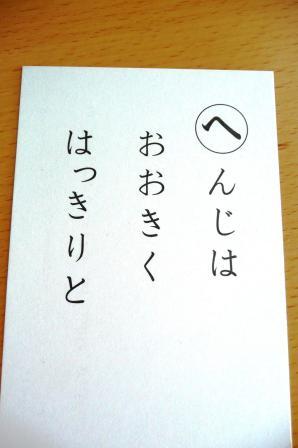 へんじは
おおきく
はっきりと